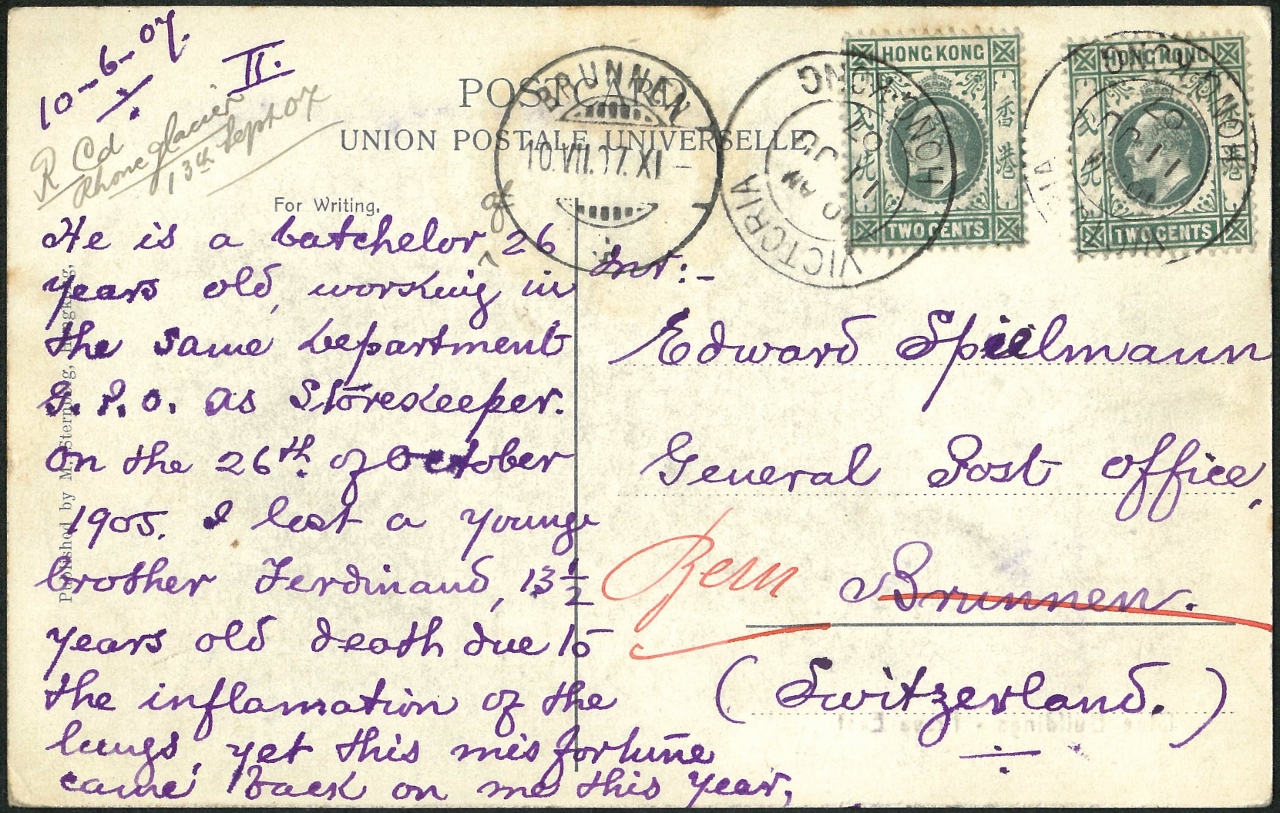 10-6-07.
II.
R Cd
Rhone glacier
13th Sept 07
POST CARD
UNION POSTALE UNIVERSELLE
For Writing.
BRUNNEN
10.VII.07.XI-
VICTORIA
HONG-KONG
10 AM
11 JU
07
VICTORIA
HONG-KONG
10
11 JU
07
HONG KONG
香港
TWO CENTS
HONG KONG
港
TWO CENTS
He is a batchelor, 26
years old, working in
the same Department
G.P.O. as Storekeeper.
On the 26th of October
1905. I lost a younge
brother Ferdinand, 13½
years old death due to
the inflamation of the
lungs, yet this misfortune
came back on me this year,
Edward Spielmann
General Post Office,
Bern
Brunnen.
(Switzerland.)
Published by M. Sternberg, Hongkong.